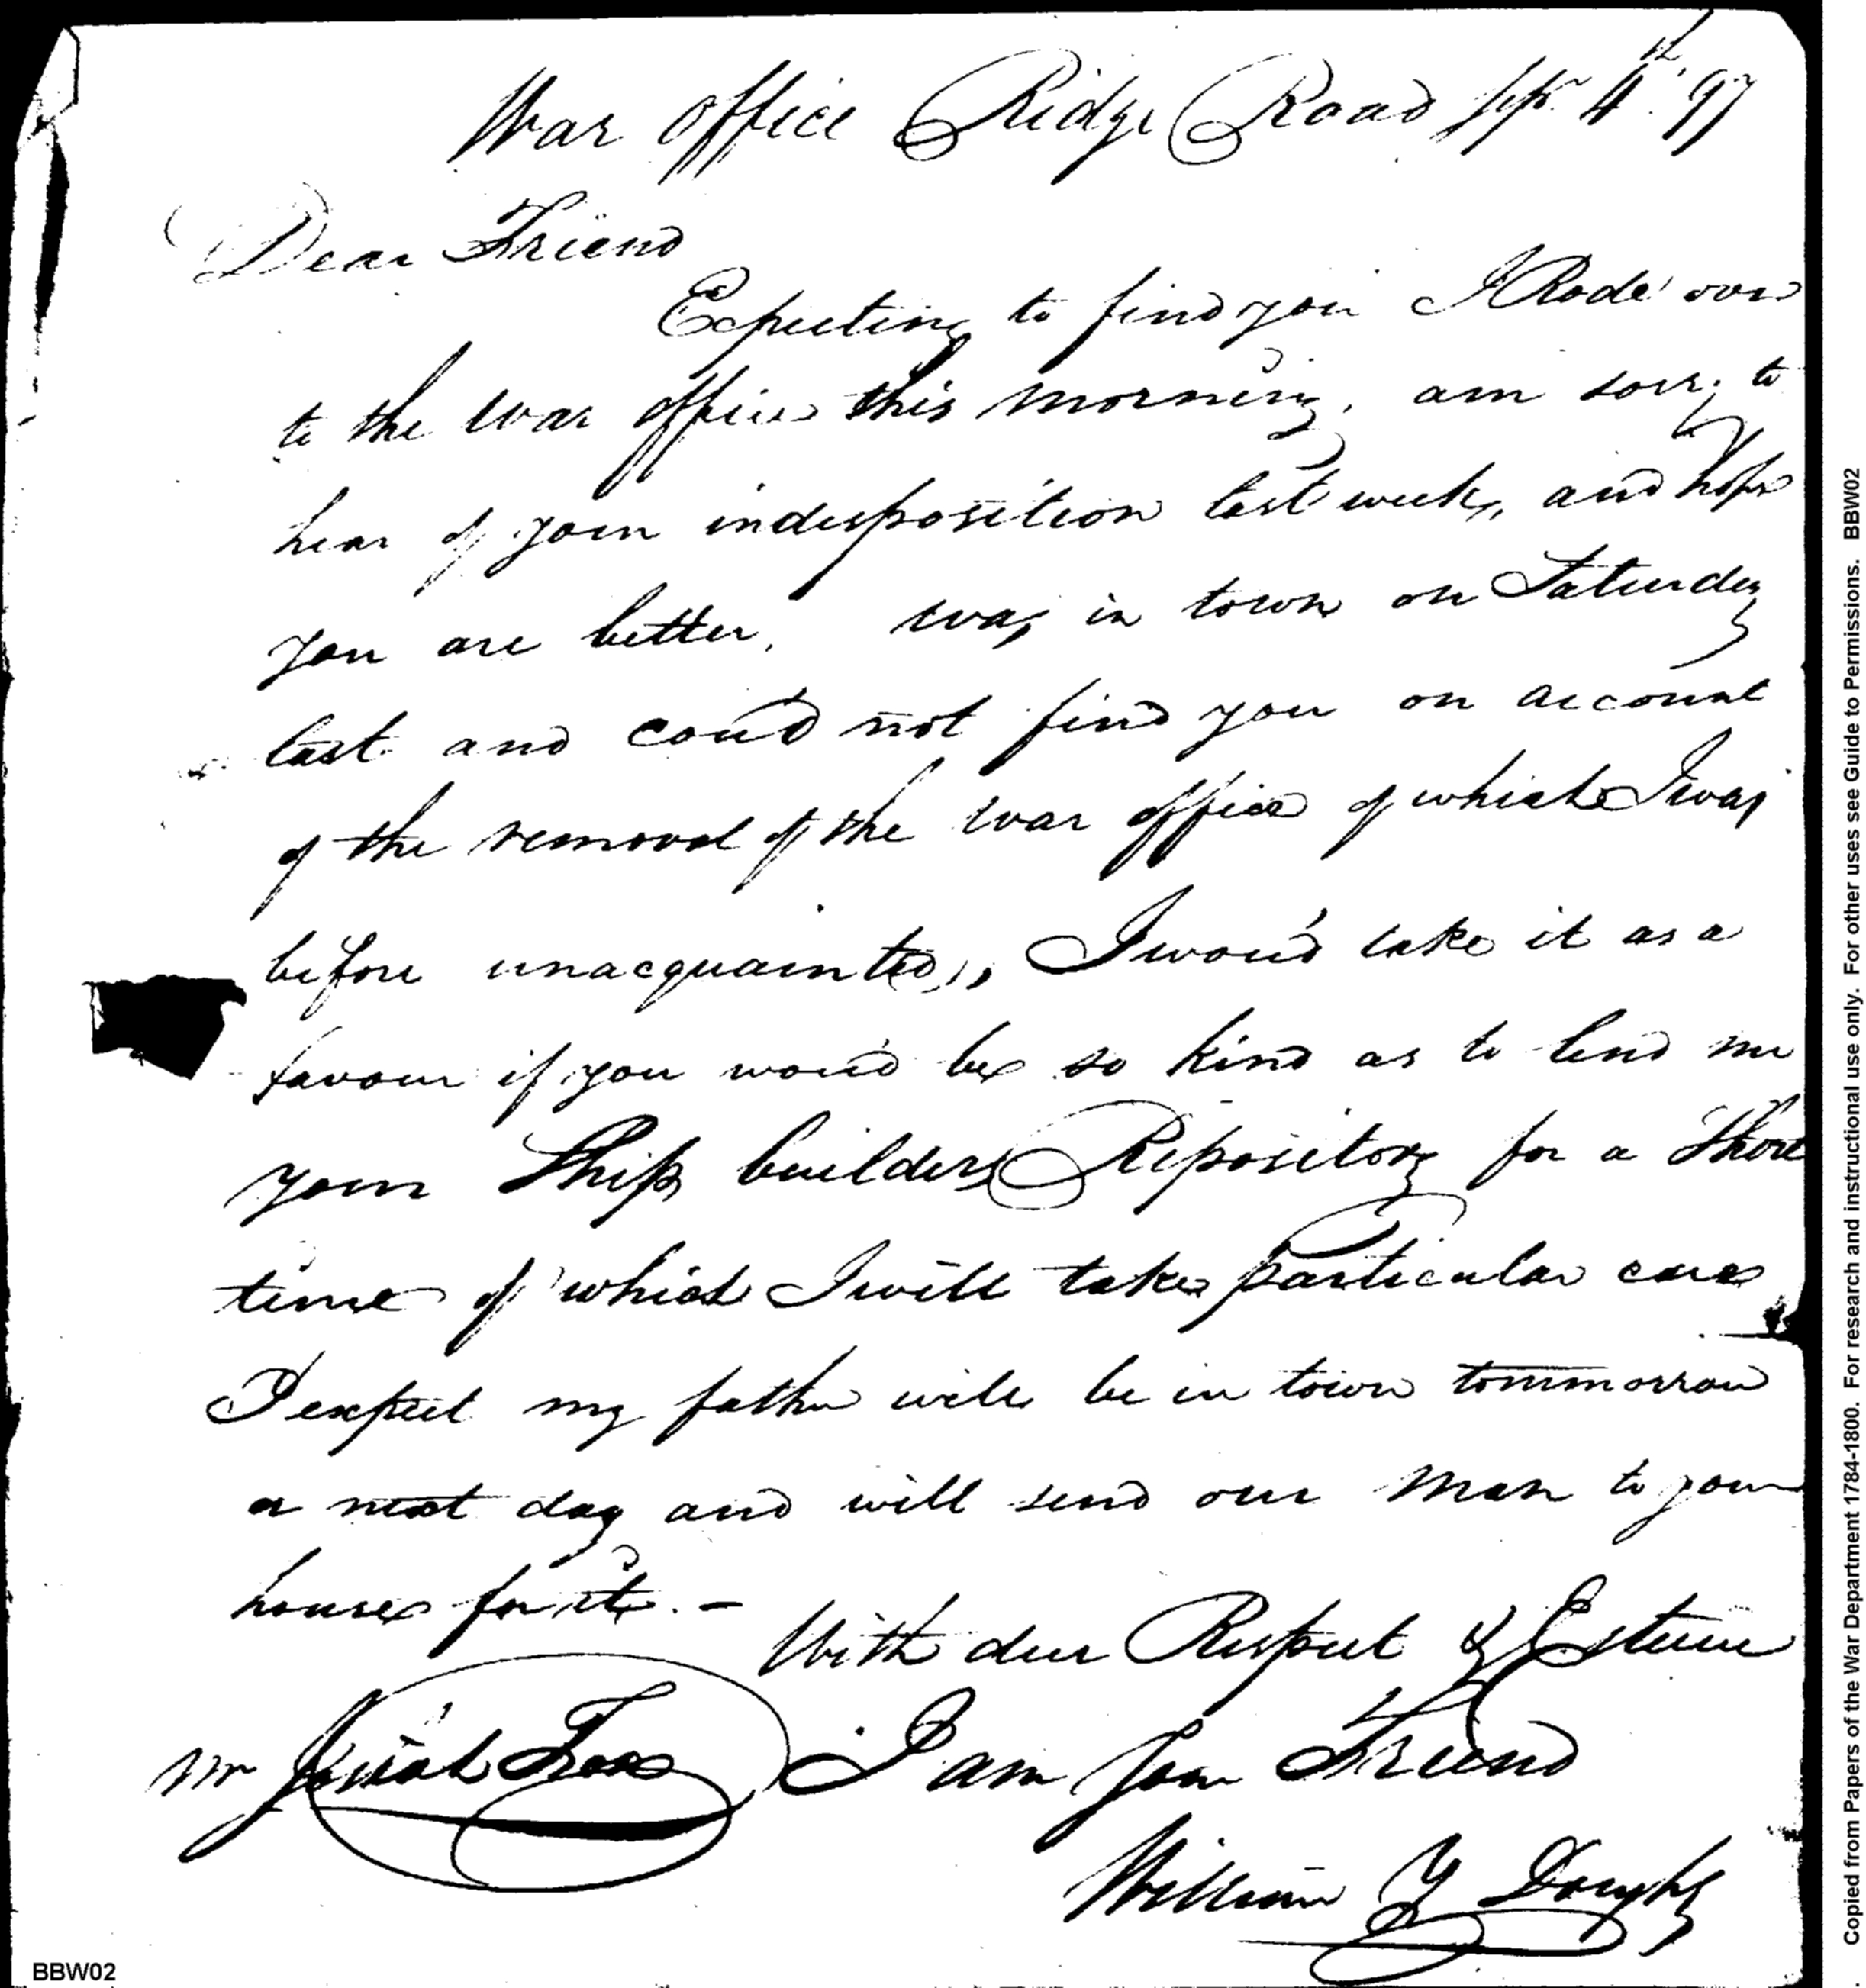 War Office Ridge Road Sepr. 4th. 97
Dear Friend
Expecting to find you I Rode over
to the War office this morning, am sorry to
hear of your indisposition last week, and hope
you are better, was in town on Saturday
last and cou'd not find you on account
of the removal of the War office of which I was
before unacquainted, I wou'd take it as a
favour if you wou'd be so kind as to lend me
your Ship builders Repository for a Short
time of which I will take particular care
I expect my father will be in town tommorrow
or next day and will send our man to your
house for it. –
With due Respect & Esteem
Mr Josiah Fox I am your Friend
William Y Doughty
Copied from Papers of the War Department 1784-1800. For research and instructional use only. For other uses see Guide to Permissions. BBW02
BBW02